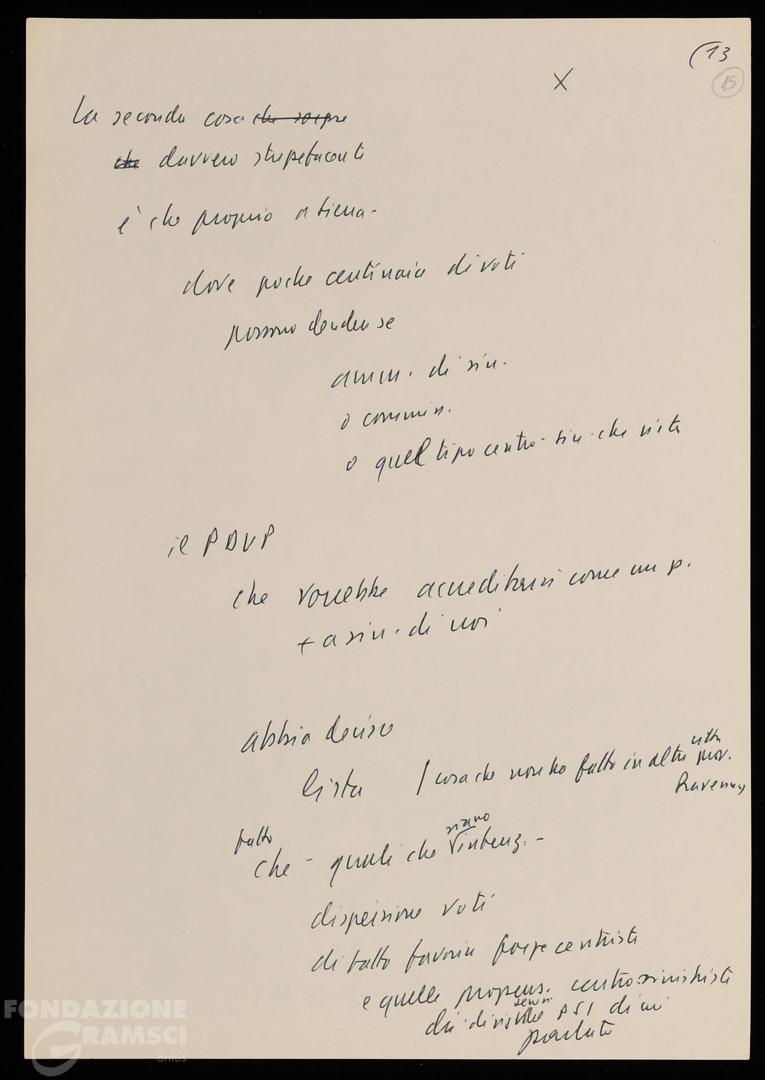 (13
15
X
La seconda cosa che sorpre
che davvero stupefacente
è che proprio a Siena -
dove poche centinaia di voti
possono decidere se
amm. di sin.
o commis.
o quel tipo centro-sin. che
il PDUP
che vorrebbe accreditarsi come un p.
+ a sin. di noi
abbia deciso
lista / cosa che non ha fatto in altre città prov.
Ravenna
fatto
che - quali che siano l'intenz. -
dispersione voti
di fatto favorire forze centriste
e quelle propens. centrosinistriste
PSI di cui
parlato
FONDAZIONE
GRAMSCI
onlus